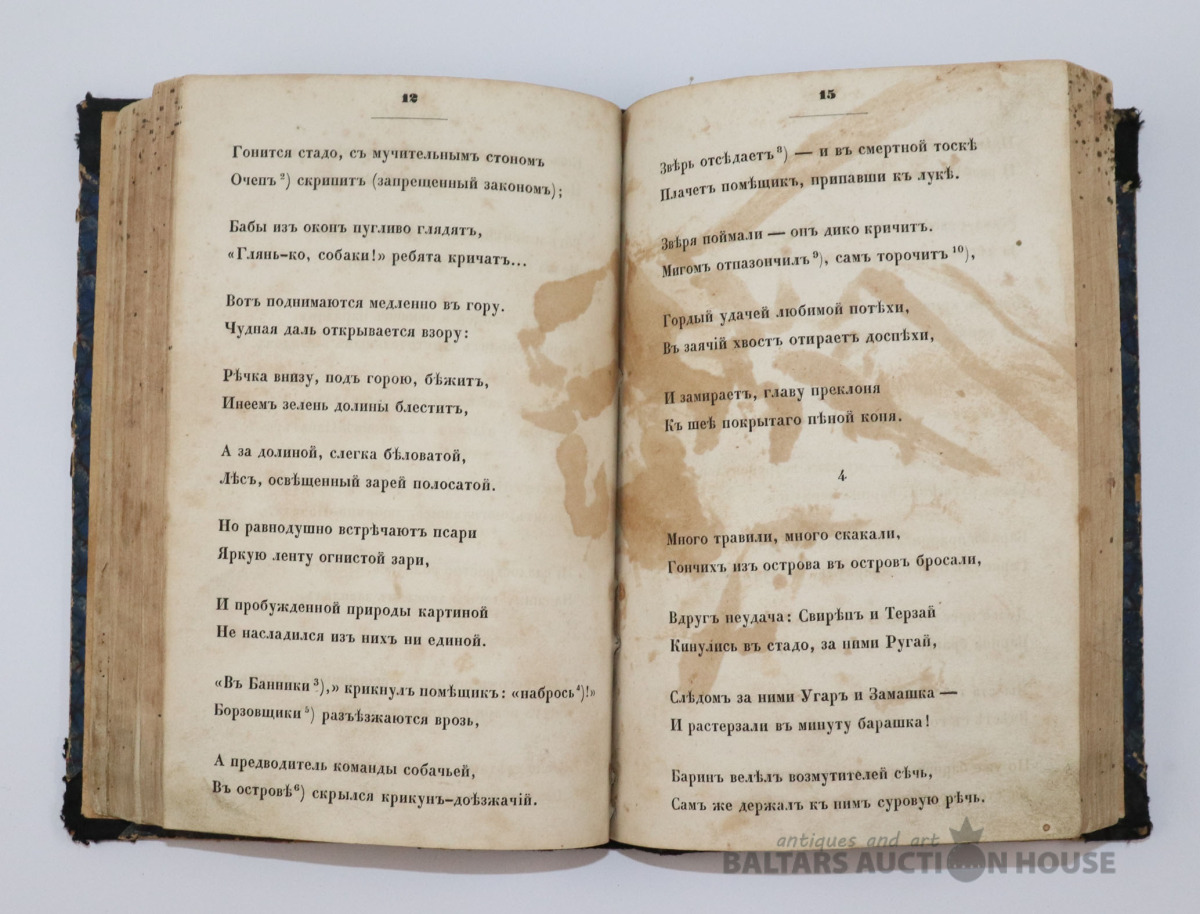 12
Гонится стадо, съ мучительнымъ стономъ
Очепъ ²) скрипитъ (запрещенный закономъ);
Бабы изъ оконъ пугливо глядятъ,
«Глянь-ко, собаки!» ребята кричатъ...
Вотъ поднимаются медленно въ гору.
Чудная даль открывается взору:
Рѣчка внизу, подъ горою, бѣжитъ,
Инеемъ зелень долины блеститъ,
А за долиной, слегка бѣловатой,
Лѣсъ, освѣщенный зарей полосатой.
Но равнодушно встрѣчаютъ псари
Яркую ленту огнистой зари,
И пробужденной природы картиной
Не насладился изъ нихъ ни единой.
«Въ Банники ³),» крикнулъ помѣщикъ: «набрось ⁴)!»
Борзовщики ⁵) разъѣзжаются врозь,
А предводитель команды собачьей,
Въ островѣ ⁶) скрылся крикунъ-доѣзжачій.
15
Звѣрь отсѣдаетъ ⁸) — и въ смертной тоскѣ
Плачетъ помѣщикъ, припавши къ лукѣ.
Звѣря поймали — онъ дико кричитъ.
Мигомъ отпазончилъ ⁹), самъ торочитъ ¹⁰),
Гордый удачей любимой потѣхи,
Въ заячій хвостъ отираетъ доспѣхи,
И замираетъ, главу преклоня
Къ шеѣ покрытаго пѣной коня.
4
Много травили, много скакали,
Гончихъ изъ острова въ островъ бросали,
Вдругъ неудача: Свирѣпъ и Терзай
Кинулись въ стадо, за ними Ругай,
Слѣдомъ за ними Угаръ и Замашка —
И растерзали въ минуту барашка!
Баринъ велѣлъ возмутителей сѣчь,
Самъ же держалъ къ нимъ суровую рѣчь.
antiques and art
BALTARS AUCTION HOUSE